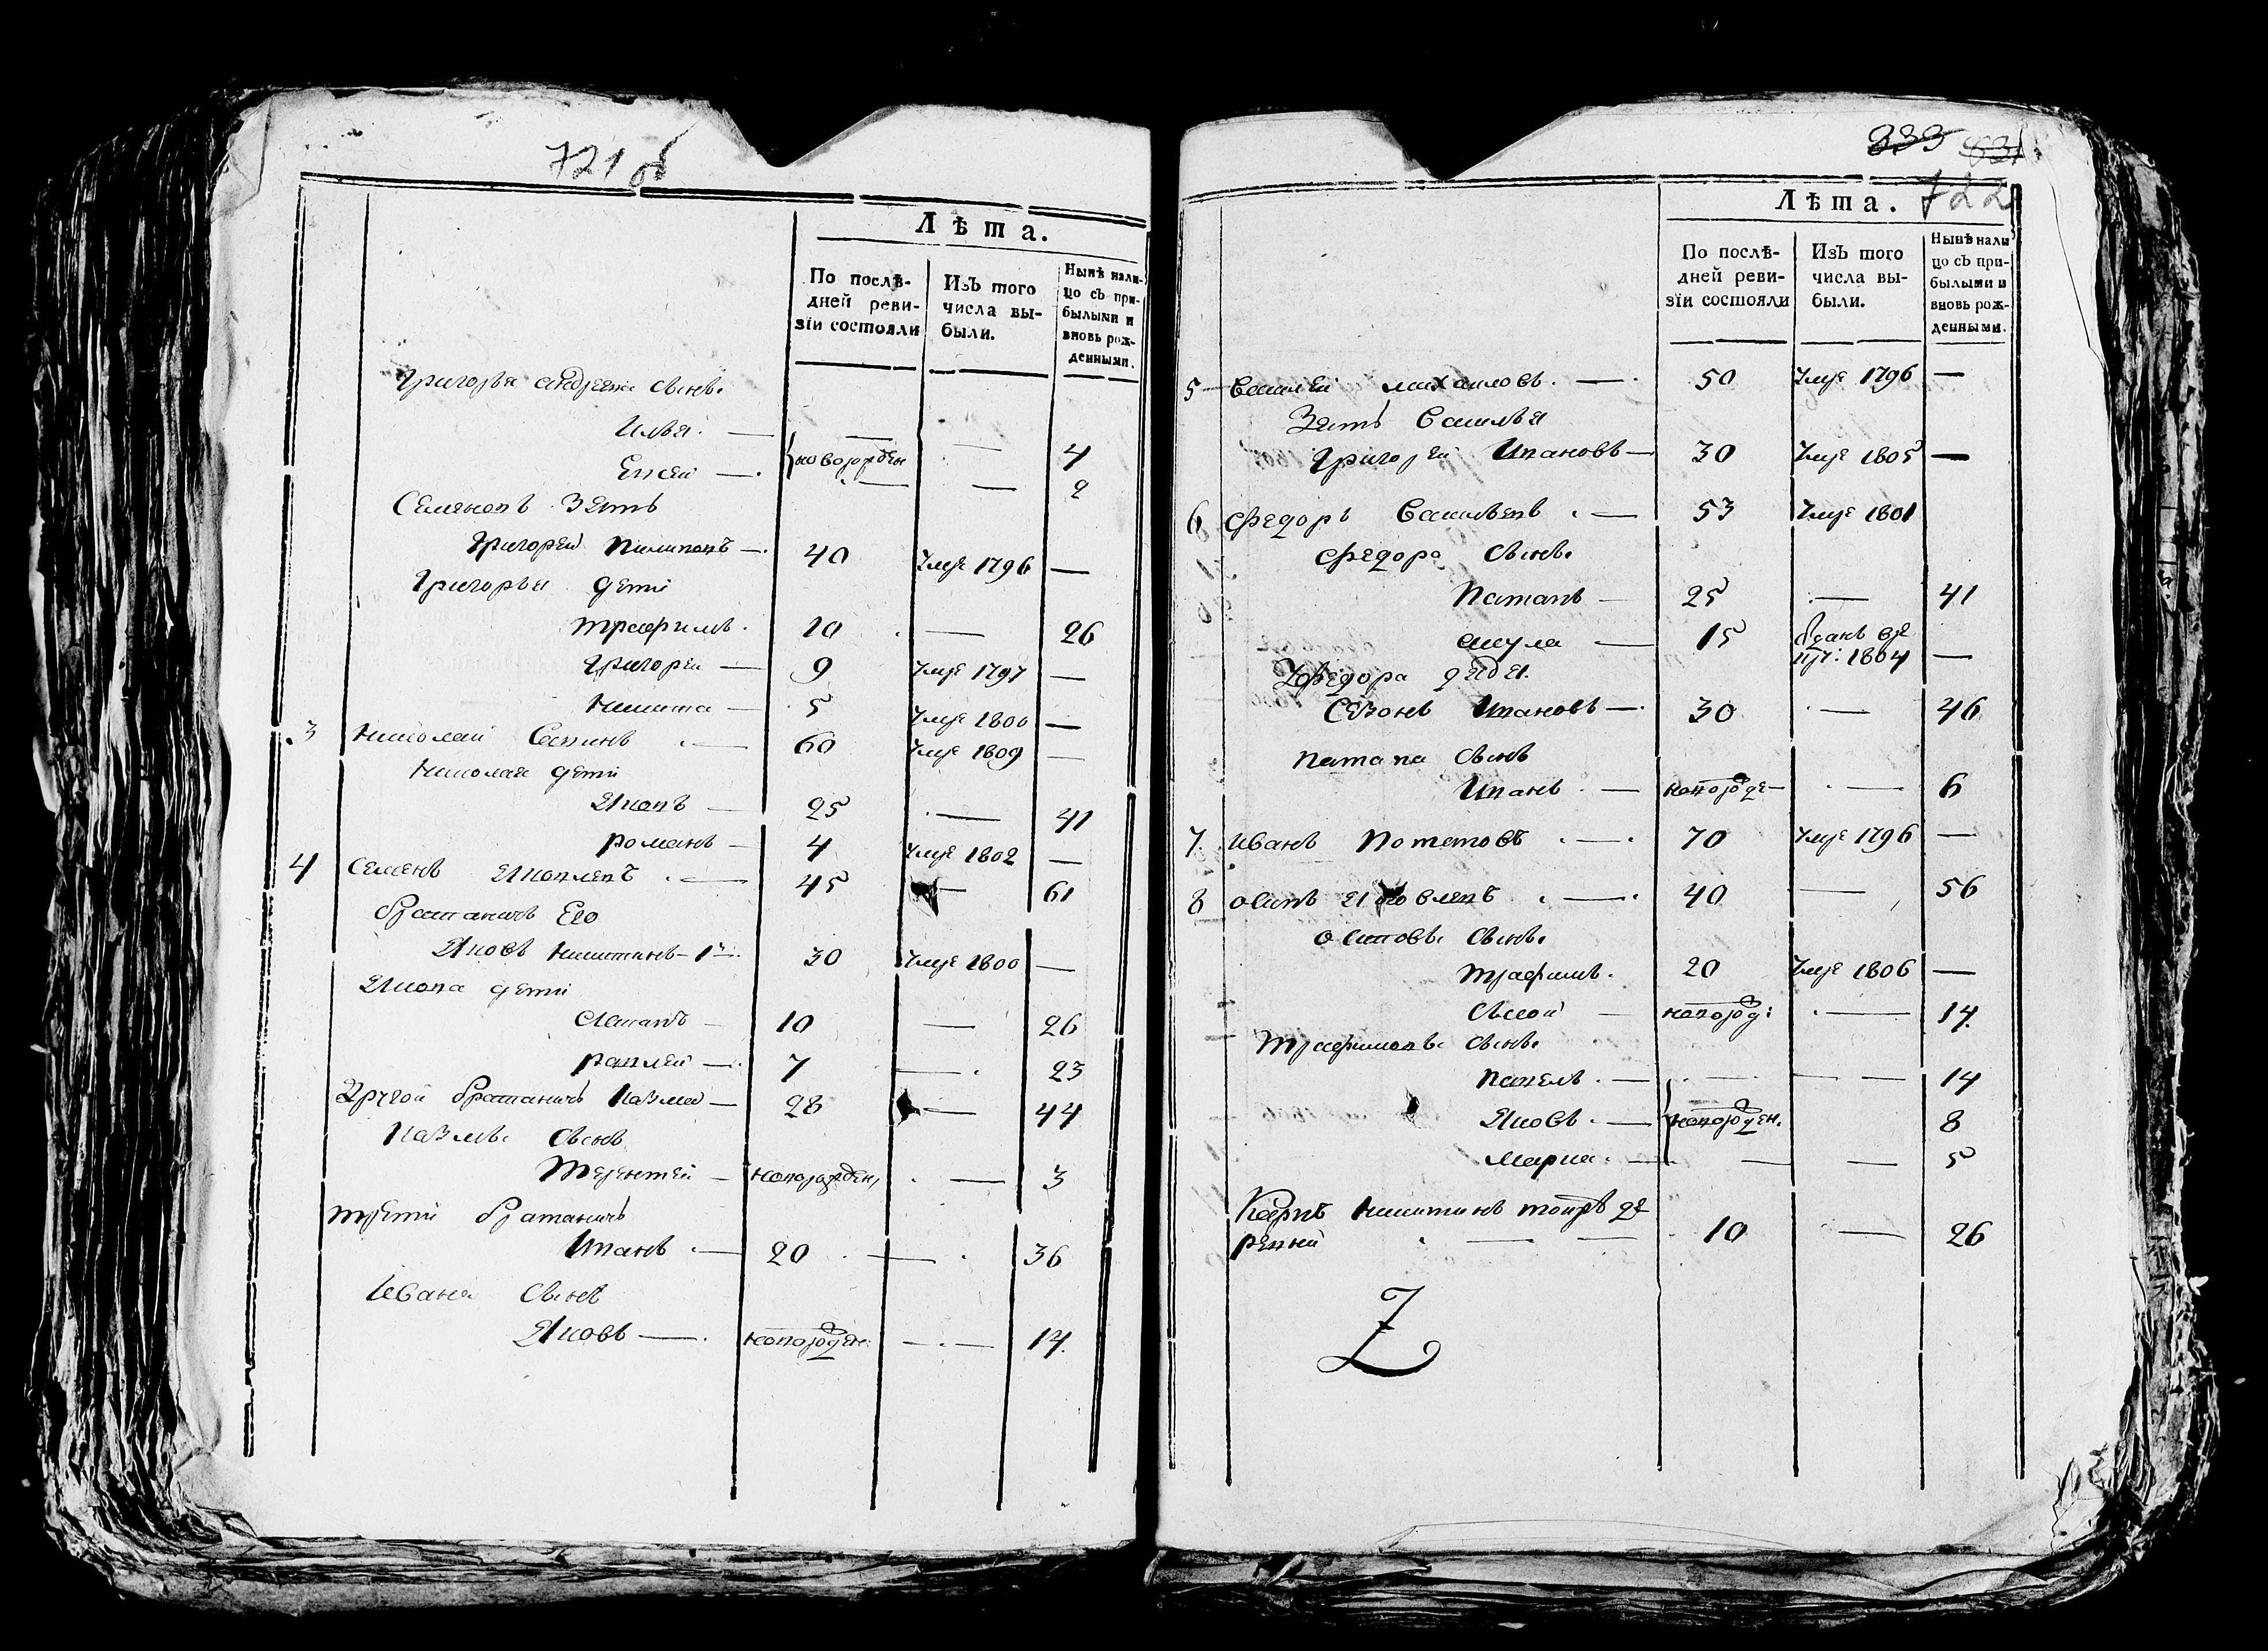 721 об
Лѣта.
По послѣ-
дней реви-
зїи состояли
Изъ того
числа вы-
были.
Нынѣ нали-
цо съ при-
былыми и
вновь рож-
денными.
Григорья андреева сынъ.
Илья — — — 4
Евсей — новорожден — 2
Семеновъ Зять
Григорей Пилиповъ — 40 Умре 1796 —
Григорья дети
трафимъ. 10 — 26
Григореи — 9 Умре 1797 —
Никита — 5 Умре 1800 —
3 Николай Савинъ — 60 Умре 1809 —
Николая дети
Яковъ — 25 — 41
романъ — 4 Умре 1802 —
4 Семенъ Яковлевъ — 45 — 61
братаничъ Его
Яковъ Никитинъ 1й 30 Умре 1800 —
Якова дети
10 — 26
7 — 23
Другой братаничъ Казма — 28 — 44
Казмы Сынъ
Терентей — новорожден, — 3
третий братаничъ
Иванъ — 20 — 36
Ивана Сынъ
Яковъ — новорожден: — 14.
333 631
722
Лѣта.
По послѣ-
дней реви-
зїи состояли
Изъ того
числа вы-
были.
Нынѣ нали
цо съ при-
былыми и
вновь рож-
денными.
5 Василеи михаиловъ. — 50 Умре 1796 —
Зять Василья
Григорей Ивановъ — 30 Умре 1805 —
6 Федоръ Васильевъ — 53 Умре 1801
Федора Сынъ
Патапъ — 25 — 41
акула — 15 Зданъ въ
1804 —
Федора дядя
Созонъ Ивановъ — 30 — 46
патапа Сынъ
Иванъ — новорожде — 6
7. Иванъ Потетовъ — 70 Умре 1796 —
8 осипъ Яковлевъ — 40 — 56
осиповъ Сынъ
трафимъ. 20 Умре 1806 —
Сысой — новорожд: — 14.
трафимовъ Сынъ
Павелъ — — — 14
Яковъ — новорожден. 8
Марка — — — 5
Карпъ Никитинъ тойжъ де
ревни — — 10 — 26